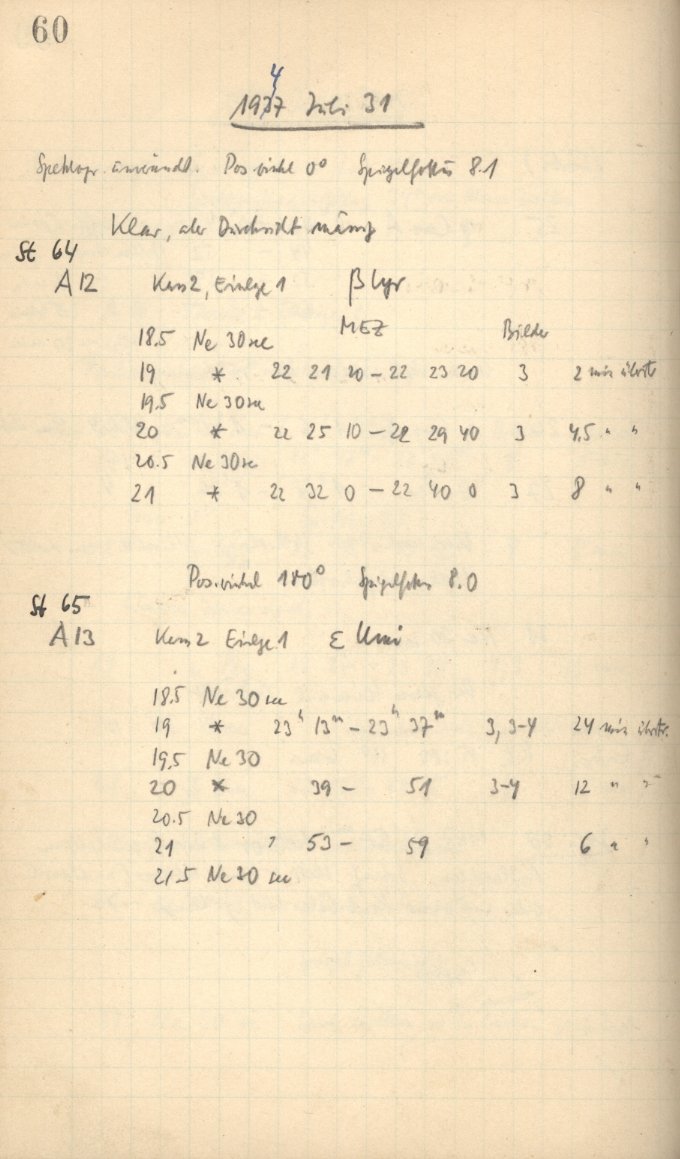 60
4
1937 Juli 31
Spektogr. anwandt. Pos. winkel 0° Spiegelfokus 8.1
Klar, aber Durchsicht mässig
St 64
A12 Kass 2, Einlge 1 β lyr
MEZ Bilder
18.5 Ne 30 sec
19 * 22 21 20 – 22 23 20 3 2 min
19.5 Ne 30 sec
20 * 22 25 10 – 22 29 40 3 4,5 " "
20.5 Ne 30 sec
21 * 22 32 0 – 22 40 0 3 8 " "
Pos. winkel 180° Spiegelfokus 8.0
St 65
A13 Kass 2 Einlge 1 ε Umi
18.5 Ne 30 sec
19 * 23h 13m – 23h 37m 3, 3-4 24 min
19.5 Ne 30
20 * 39 – 51 3-4 12 " "
20.5 Ne 30
21 " 53 – 59 6 " "
21.5 Ne 30 sec